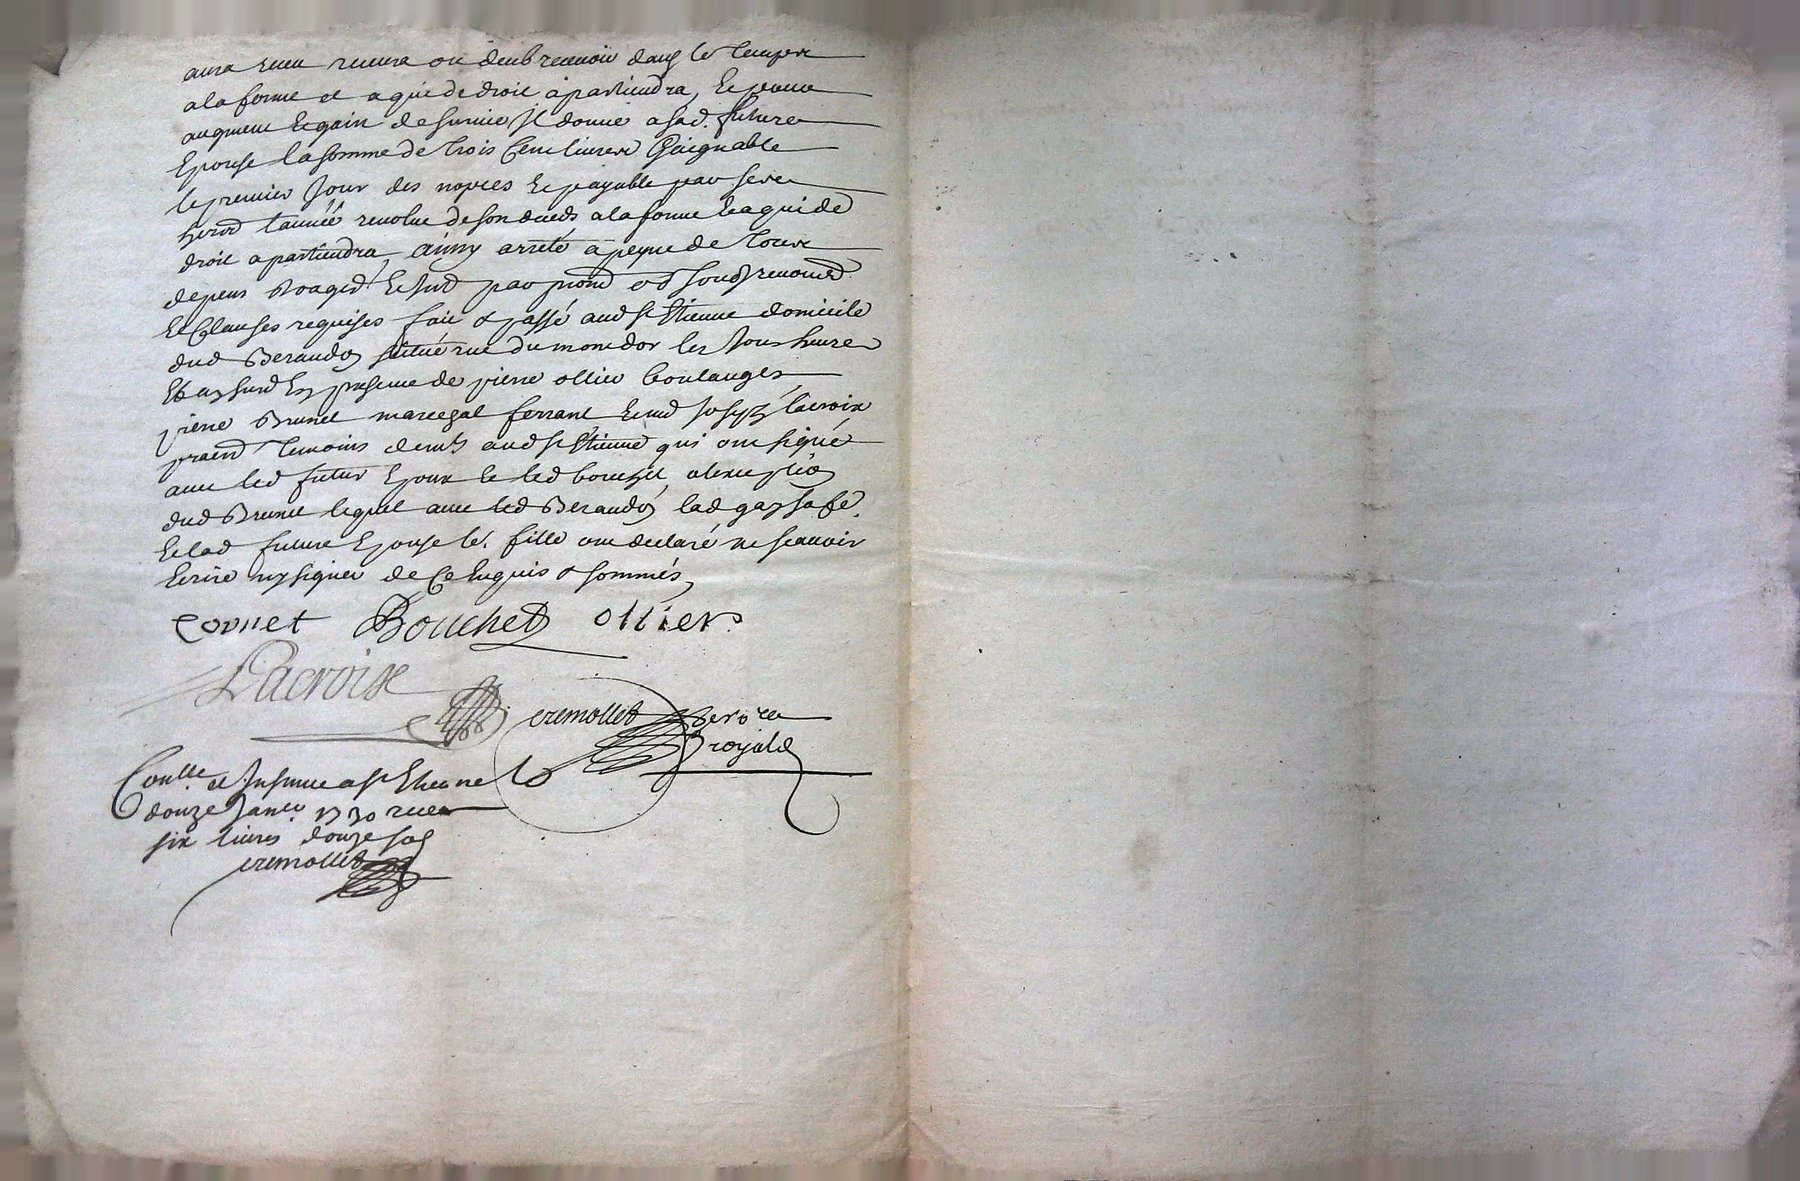 aura receu recevra ou deub recevoir dans le temps
a la forme et a qui de droit apartiendra, Et pour
augment Et gain de survie Il donne a sad. future
Epouse la somme de trois Cent livres Gaignable
le premier Jour des nopces Et payable par ses
hers l'année revolue de son deceds a la forme Et a qui de
droit apartiendra, ainsy arreté a peyne de tous
depens
Et Clauses requises fait & passé aud St Etienne domicile
dud Beraudon rue du mond'or les Jour
presence de pierre ollier boulanger
pierre Brunel marechal ferrant Joseph lacroix
praticien temoins aud St Etienne qui ont signé
avec led futur Epoux Et led bouchet,
dud Brunel lequel avec led Beraudon lad
Et lad future Epouse fille ont declaré ne scavoir
Ecrire ny signer de Ce Enquis & sommés,
Cornet Bouchet ollier
Lacroix
cremollet nore
royald
Conlle et Insinue a St Etienne le
douze Janer 1730 recu
six livres douze sols
cremollet